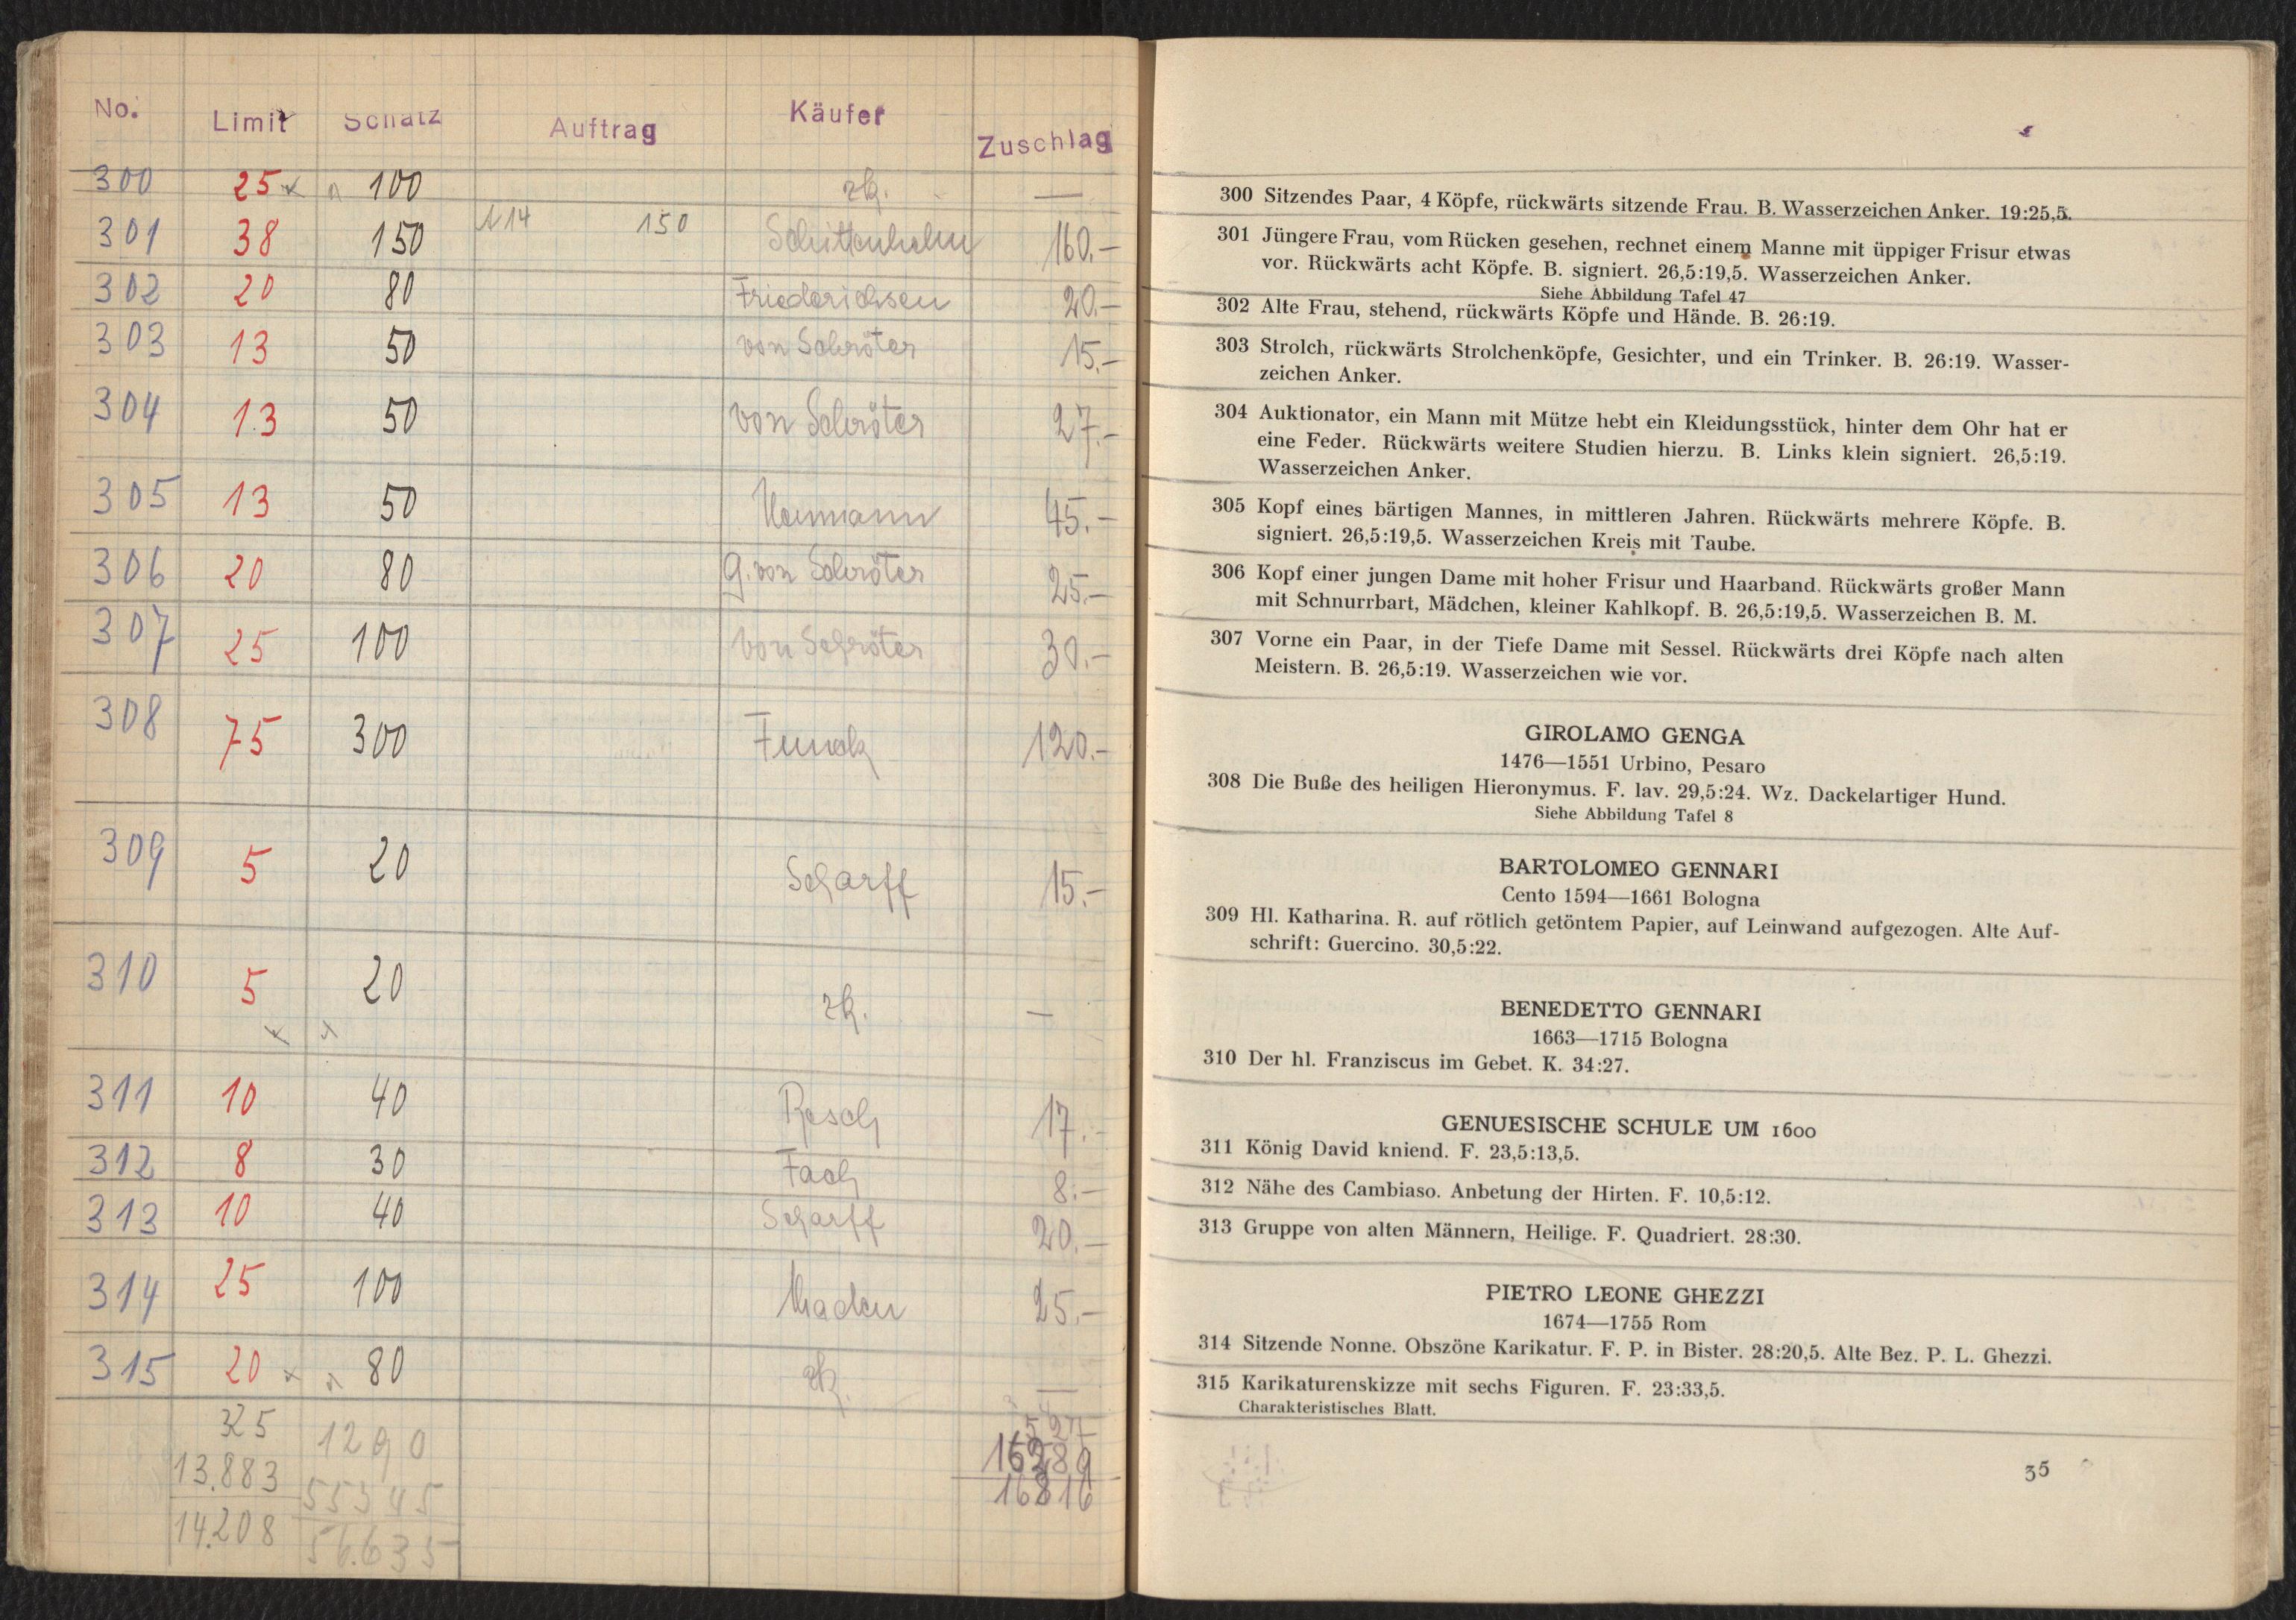 No. Limit Schätz Auftrag Käufer Zuschlag
300 25 x 100 zk. —
301 38 150 N14 150 Schittenhelm 160.-
302 20 80 Friederichsen 20.-
303 13 50 von Schröter 15.-
304 13 50 von Schröter 27.-
305 13 50 45.-
306 20 80 G. von Schröter 25.-
307 25 100 von Schröter 30.-
308 75 300 Funck 120.-
309 5 20 Scharff 15.-
310 5 20 zk. —
x x
311 10 40 Resch 17.-
312 8 30 Fach 8.-
313 10 40 Scharff 20.-
314 25 100 25.-
315 20 x x 80 zk. —
325 1290 527
13.883 55345 16289
14.208 56.635 16816
300 Sitzendes Paar, 4 Köpfe, rückwärts sitzende Frau. B. Wasserzeichen Anker. 19:25,5.
301 Jüngere Frau, vom Rücken gesehen, rechnet einem Manne mit üppiger Frisur etwas
vor. Rückwärts acht Köpfe. B. signiert. 26,5:19,5. Wasserzeichen Anker.
Siehe Abbildung Tafel 47
302 Alte Frau, stehend, rückwärts Köpfe und Hände. B. 26:19.
303 Strolch, rückwärts Strolchenköpfe, Gesichter, und ein Trinker. B. 26:19. Wasser-
zeichen Anker.
304 Auktionator, ein Mann mit Mütze hebt ein Kleidungsstück, hinter dem Ohr hat er
eine Feder. Rückwärts weitere Studien hierzu. B. Links klein signiert. 26,5:19.
Wasserzeichen Anker.
305 Kopf eines bärtigen Mannes, in mittleren Jahren. Rückwärts mehrere Köpfe. B.
signiert. 26,5:19,5. Wasserzeichen Kreis mit Taube.
306 Kopf einer jungen Dame mit hoher Frisur und Haarband. Rückwärts großer Mann
mit Schnurrbart, Mädchen, kleiner Kahlkopf. B. 26,5:19,5. Wasserzeichen B. M.
307 Vorne ein Paar, in der Tiefe Dame mit Sessel. Rückwärts drei Köpfe nach alten
Meistern. B. 26,5:19. Wasserzeichen wie vor.
GIROLAMO GENGA
1476—1551 Urbino, Pesaro
308 Die Buße des heiligen Hieronymus. F. lav. 29,5:24. Wz. Dackelartiger Hund.
Siehe Abbildung Tafel 8
BARTOLOMEO GENNARI
Cento 1594—1661 Bologna
309 Hl. Katharina. R. auf rötlich getöntem Papier, auf Leinwand aufgezogen. Alte Auf-
schrift: Guercino. 30,5:22.
BENEDETTO GENNARI
1663—1715 Bologna
310 Der hl. Franziscus im Gebet. K. 34:27.
GENUESISCHE SCHULE UM 1600
311 König David kniend. F. 23,5:13,5.
312 Nähe des Cambiaso. Anbetung der Hirten. F. 10,5:12.
313 Gruppe von alten Männern, Heilige. F. Quadriert. 28:30.
PIETRO LEONE GHEZZI
1674—1755 Rom
314 Sitzende Nonne. Obszöne Karikatur. F. P. in Bister. 28:20,5. Alte Bez. P. L. Ghezzi.
315 Karikaturenskizze mit sechs Figuren. F. 23:33,5.
Charakteristisches Blatt.
35